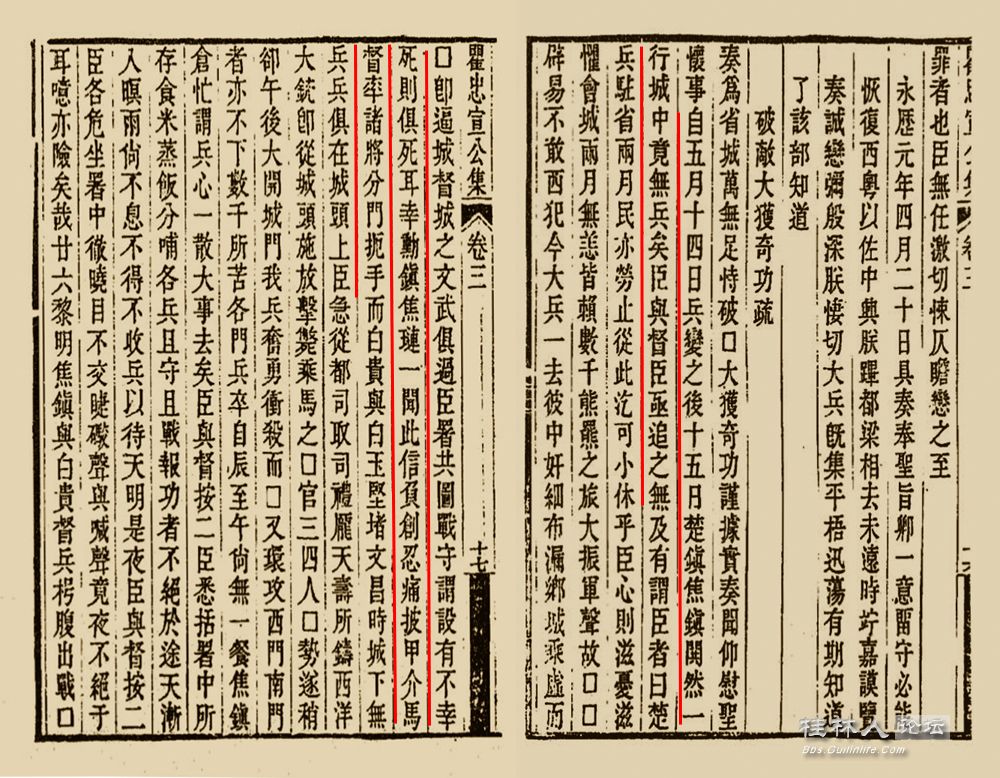 罪者也臣無任激切悚仄瞻戀之至
永歷元年四月二十日具奏奉聖旨卿一意畱守必能
恢復西粵以佐中興朕蹕都梁相去未遠時竚嘉謨覽
奏誠戀彌殷深朕悽切大兵旣集平梧迅蕩有期知道
了該部知道
破敵大獲奇功疏
奏爲省城萬無足恃破囗大獲奇功謹據實奏聞仰慰聖
懷事自五月十四日兵變之後十五日楚鎮焦鎮鬨然一
行城中竟無兵矣臣與督臣亟追之無及有謂臣者曰楚
兵駐省兩月民亦勞止從此汔可小休乎臣心則滋憂滋
懼會城兩月無恙皆賴數千熊羆之旅大振軍聲故囗囗
辟易不敢西犯今大兵一去彼中奸細布漏鄉城乘虛而
瞿忠宣公集 卷三 十七
囗卽逼城督城之文武俱過臣署共圖戰守謂設有不幸
死則俱死耳幸勳鎮焦璉一聞此信負創忍痛披甲介馬
督率諸將分門扼手而白貴與白玉堅堵文昌時城下無
兵兵俱在城頭上臣急從都司取司禮龐天壽所鑄西洋
大銃卽從城頭施放擊斃乘馬之囗官三四人囗勢遂稍
卻午後大開城門我兵奮勇衝殺而囗又環攻西門南門
者亦不下數千所苦各門兵卒自辰至午尙無一餐焦鎮
倉忙謂兵心一散大事去矣臣與督按二臣悉括署中所
存食米蒸飯分哺各兵且守且戰報功者不絕於途天漸
入暝雨尙不息不得不收兵以待天明是夜臣與督按二
臣各危坐署中徹曉目不交睫礮聲與喊聲竟夜不絕于
耳噫亦險矣哉廿六黎明焦鎮與白貴督兵枵腹出戰囗
桂林人论坛
Bbs.Guilinlife.Com